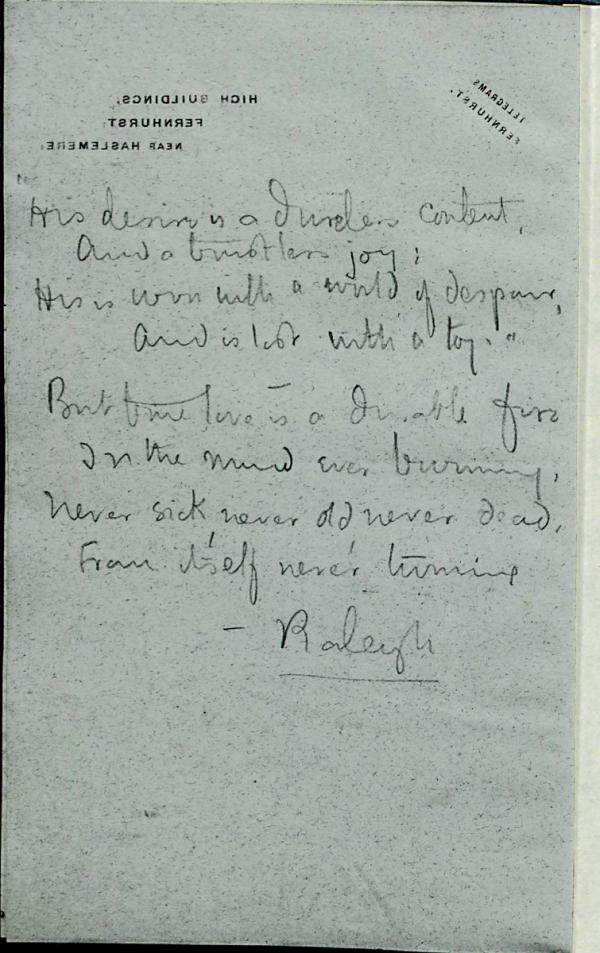 HIGH BUILDINGS,
FERNHURST
NEAR HASLEMERE.
TELEGRAMS
FERNHURST.
"His desire is a dureless content,
And a trustless joy;
His is won with a world of despair,
And is lost with a toy."
But true love is a durable fire
In the mind ever burning,
Never sick, never old never dead,
From itself never turning
- Raleigh